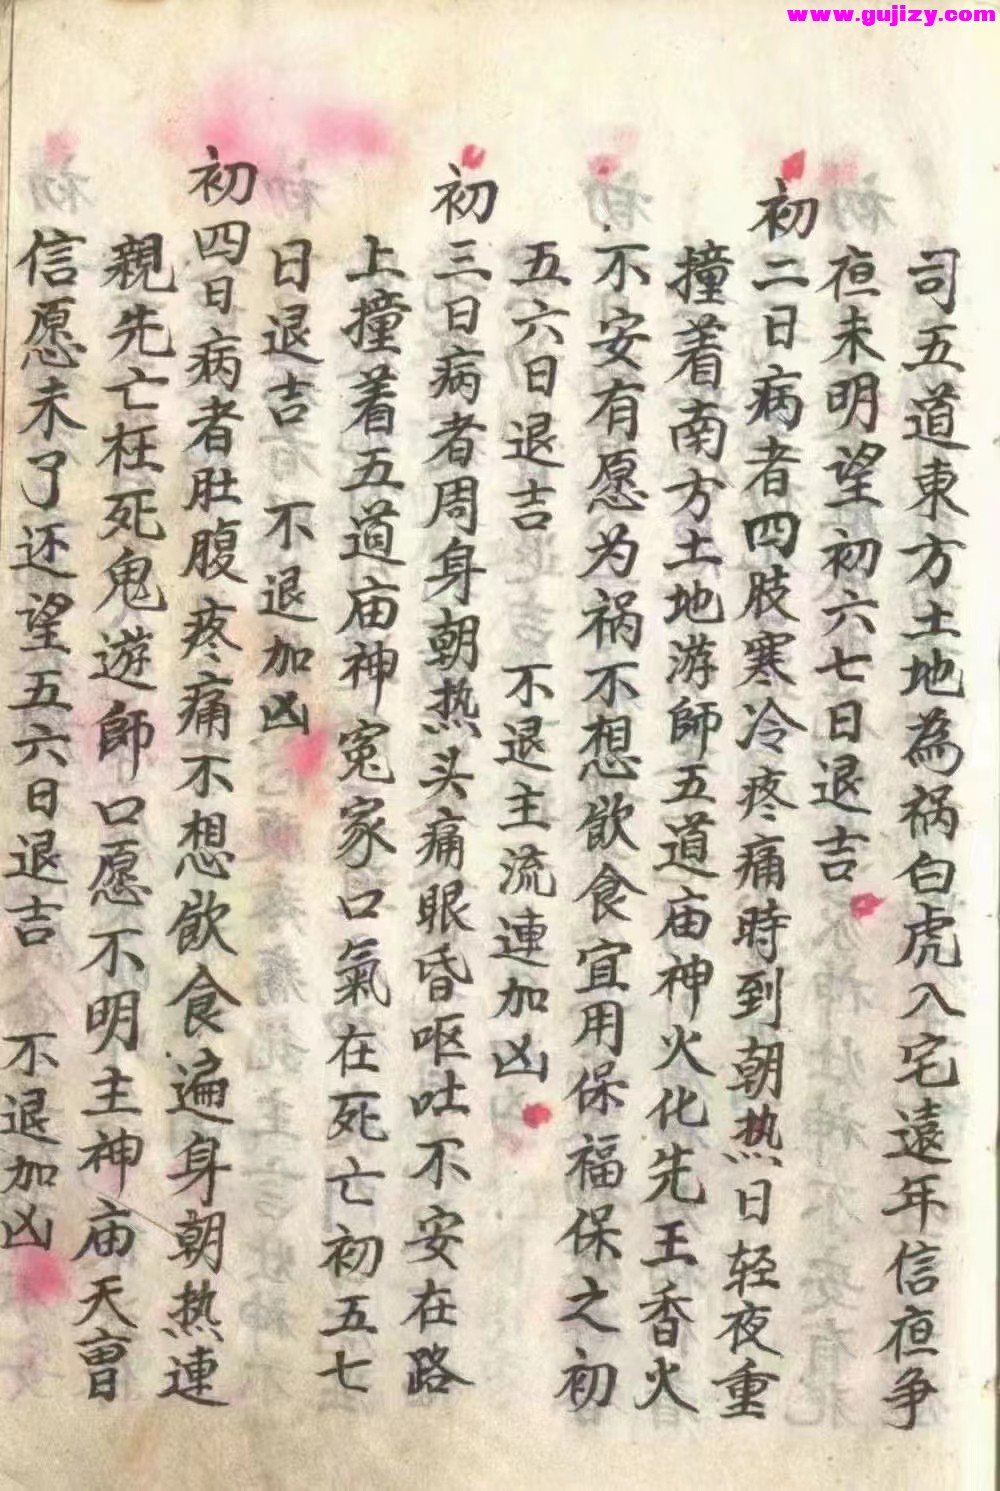 www.gujizy.com
司五道東方土地為祸白虎入宅遠年信夜争
夜未明望初六七日退吉
初二日病者四肢寒冷疼痛時到朝热日轻夜重
撞着南方土地游師五道庙神火化先王香火
不安有愿为祸不想飲食宜用保福保之初
五六日退吉 不退主流連加凶
初三日病者周身朝热头痛眼昏呕吐不安在路
上撞着五道庙神冤家口氣在死亡初五七
日退吉 不退加凶
初四日病者肚腹疼痛不想飲食遍身朝热連
親先亡枉死鬼遊師口愿不明主神庙天曹
信愿未了还望五六日退吉 不退加凶